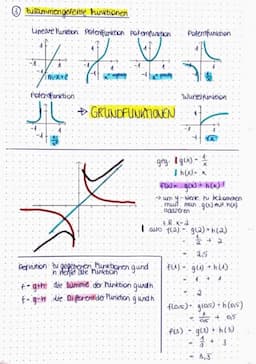 zusammengesetzte Funktionen
Lineare Funktion Potenzfunktion Potenzfunktion Potenzfunktion
Potenzfunktion Wurzelfunktion
→ GRUNDFUNKTIONEN
geg. g(x) = 1/x
h(x) = x
f(x) = g(x) + h(x)
→ um y-Werte zu bekommen
muss man g(x) mit h(x)
addieren
z.B. x=2
also f(2) = g(2) + h(2)
= 1/2 + 2
= 2,5
Definition zu gegebenen Funktionen g und
h heißt die Funktion
f = g+h die Summe der Funktion g und h
f = g-h die Differenz der Funktion g und h
f(1) = g(1) + h(1)
= 1 + 1
= 2
f(0,5) = g(0,5) + h(0,5)
= 1/0,5 + 0,5
f(3) = g(3) + h(3)
= 1/3 + 3